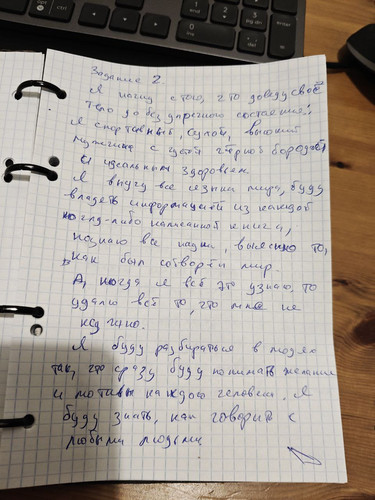 Задание 2.
Я начну с того, что доведу своё
тело до безупречного состояния:
я спортивный, сухой, высокий
мужчина с
и идеальным здоровьем.
Я выучу все языки мира, буду
владеть информацией из каждой
когда-либо написанной книги,
познаю все науки, выясню то,
как был сотворён мир.
А, когда я всё это узнаю, то
удалю всё то, что мне не
нужно.
Я буду разбираться в людях
так, что сразу буду понимать желания
и мотивы каждого человека. Я
буду знать, как говорить с
любыми людьми